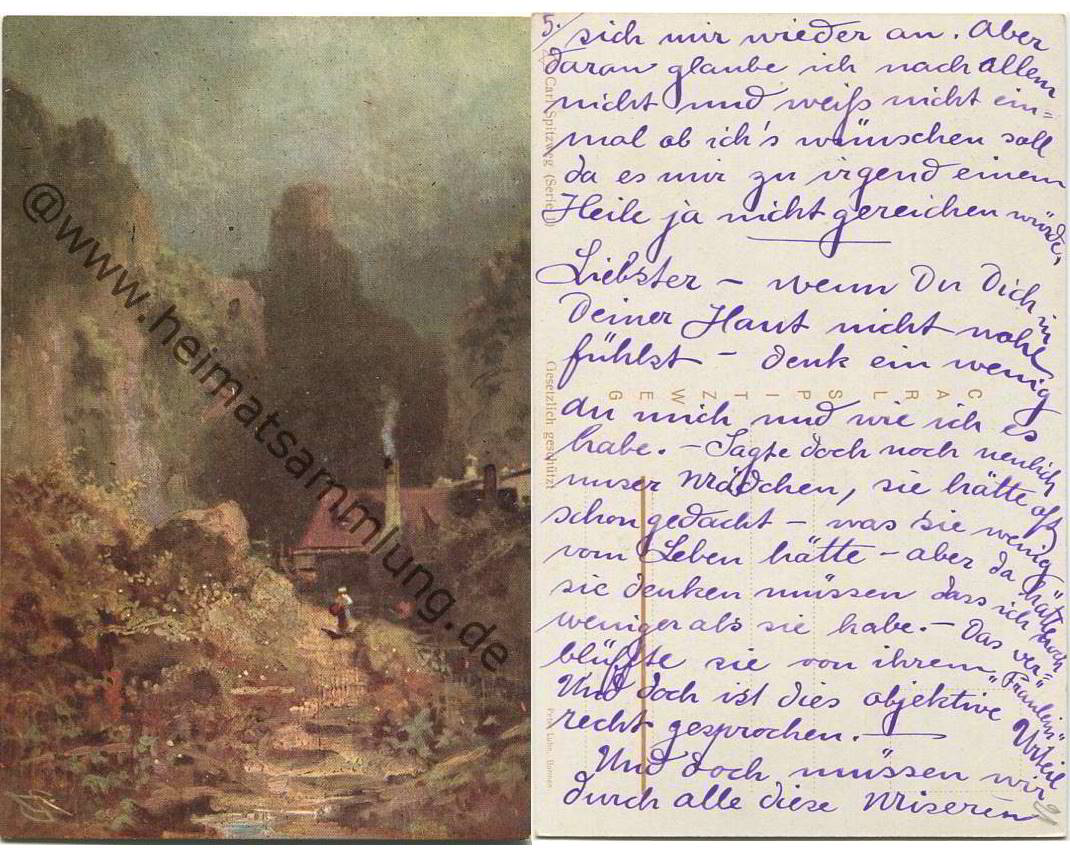 @www.heimatsammlung.de
5.
sich mir wieder an. Aber
daran glaube ich nach allem
nicht und weiß nicht ein=
mal ob ich's wünschen soll
da es mir zu irgend einem
Heile ja nicht gereichen würde,
Liebster – wenn Du Dich in
Deiner Haut nicht wohl
fühlst – denk ein wenig
an mich und wie ich es
habe. – Sagte doch noch neulich
unser Mädchen, sie hätte oft
schon gedacht – was sie wenig
vom Leben hätte – aber da hätte
sie denken müssen dass ich noch
weniger als sie habe. – Das ver=
blüffte sie von ihrem „Fräulein"
Und doch ist dies objektive Urteil
recht gesprochen. –
Und doch müssen wir
durch alle diese Miseren
Carl Spitzweg (Serie
Gesetzlich geschützt
CARL SPITZWEG
Luhn, Barmen